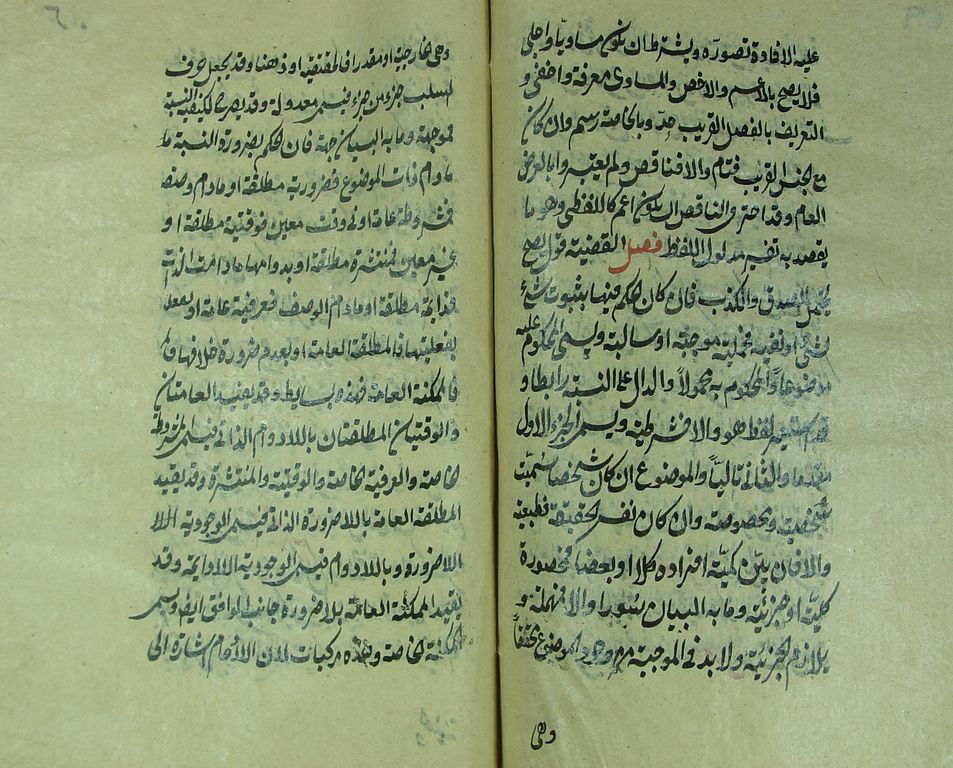 عليه لافادة تصوره ويشترط ان يكون مساويا واجلى
فلا يصح بالاعم والاخص والمساوى معرفة واخفى و
التعريف بالفصل القريب حد وبالخاصة رسم وان كان
مع الجنس القريب فتام والا فناقص ولم يعتبروا بالعرض
العام وقد اجيز فى الناقص ان يكون اعم كاللفظى وهو ما
يقصد به تفسير مدلول اللفظ فصل القضية قول يصح
يحتمل الصدق والكذب فان كان الحكم فيها بثبوت شئ
لشئ او نفيه فحملية موجبة او سالبة ويسمى المحكوم عليه
موضوعا والمحكوم به محمولا والدال على النسبة رابطا و
قد استعير لفظ هو والا فشرطية ويسمى الجزء الاول
مقدما والثانى تاليا والموضوع ان كان شخصا سميت
شخصية ومخصوصة وان كان نفس الحقيقة فطبيعية
والا فان بين كمية افراده كلا او بعضا فمحصورة
كلية او جزئية وما به البيان سورا والا فمهملة و
يلازم الجزئية ولا بد فى الموجبة من وجود الموضوع محققا
وهى
٦٠
وهى الخارجية او مقدرا فالحقيقية او ذهنا وقد يجعل حرف
السلب جزء من جزء فيسمى معدولة وقد يصرح بكيفية النسبة
فموجهة وما به البيان جهة فان الحكم بضرورة النسبة ما
مادام ذات الموضوع فضرورية مطلقة او مادام وصفه
فمشروطة عامة او فى وقت معين فوقتية مطلقة او
غير معين فمنتشرة مطلقة او بدوامها مادامت الذات
فدائمة مطلقة او مادام الوصف فعرفية عامة او
بفعليتها فالمطلقة العامة او بعدم ضرورة خلافها
فالممكنة العامة فهذه بسايط وقد يقيد العامتان
والوقتيتان المطلقتان باللادوام الذاتى فيسمى المشروطة
الخاصة والعرفية الخاصة والوقتية والمنتشرة وقد يقيد
المطلقة العامة باللاضرورة الذاتية فيسمى الوجودية اللا
اللاضرورة وباللادوام فيسمى الوجودية اللادايمة وقد
يقيد الممكنة العامة بلاضرورة جانب الموافق ايض ويسمى
الممكنة الخاصة وهذه مركبات لان اللادوام اشارة الى